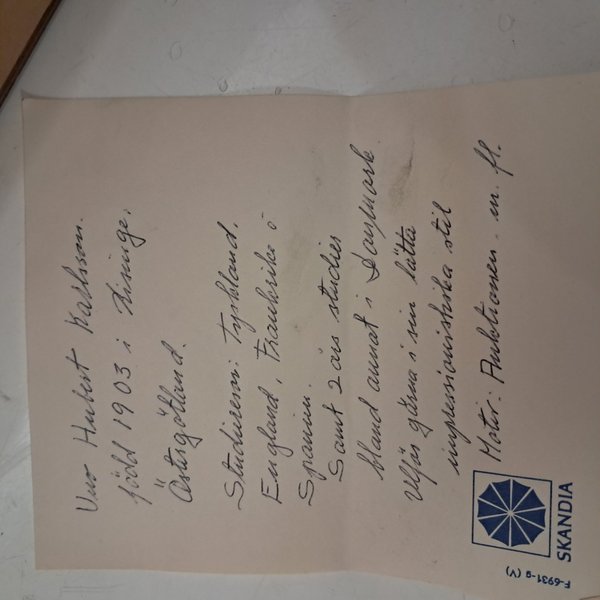 Uno Hubert Karlsson.
född 1903 i Risinge,
Östergötland.
Studieresor: Tyskland,
England, Frankrike o
Spanien.
Samt 2 års studier
bland annat i Danmark.
Utför gärna i sin lätta
impressionistiska stil
Motiv: Auktionen m. fl.
SKANDIA
F-6931-g (V)